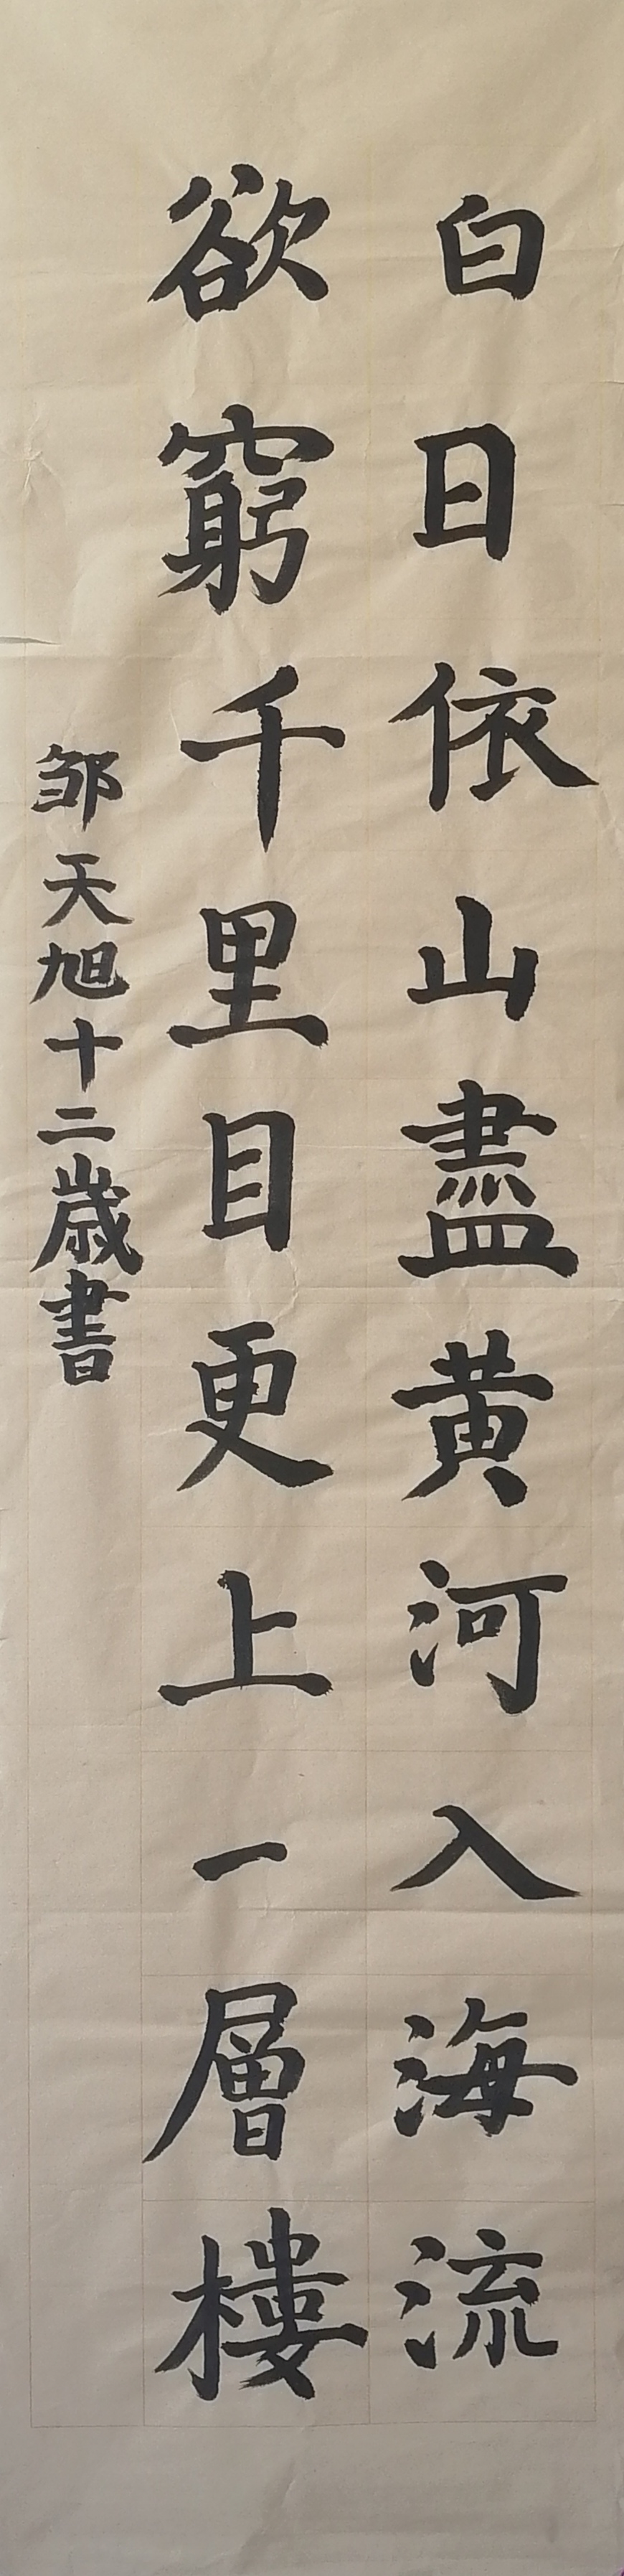 白日依山盡黄河入海流
欲窮千里目更上一層樓
邹天旭十二歲書